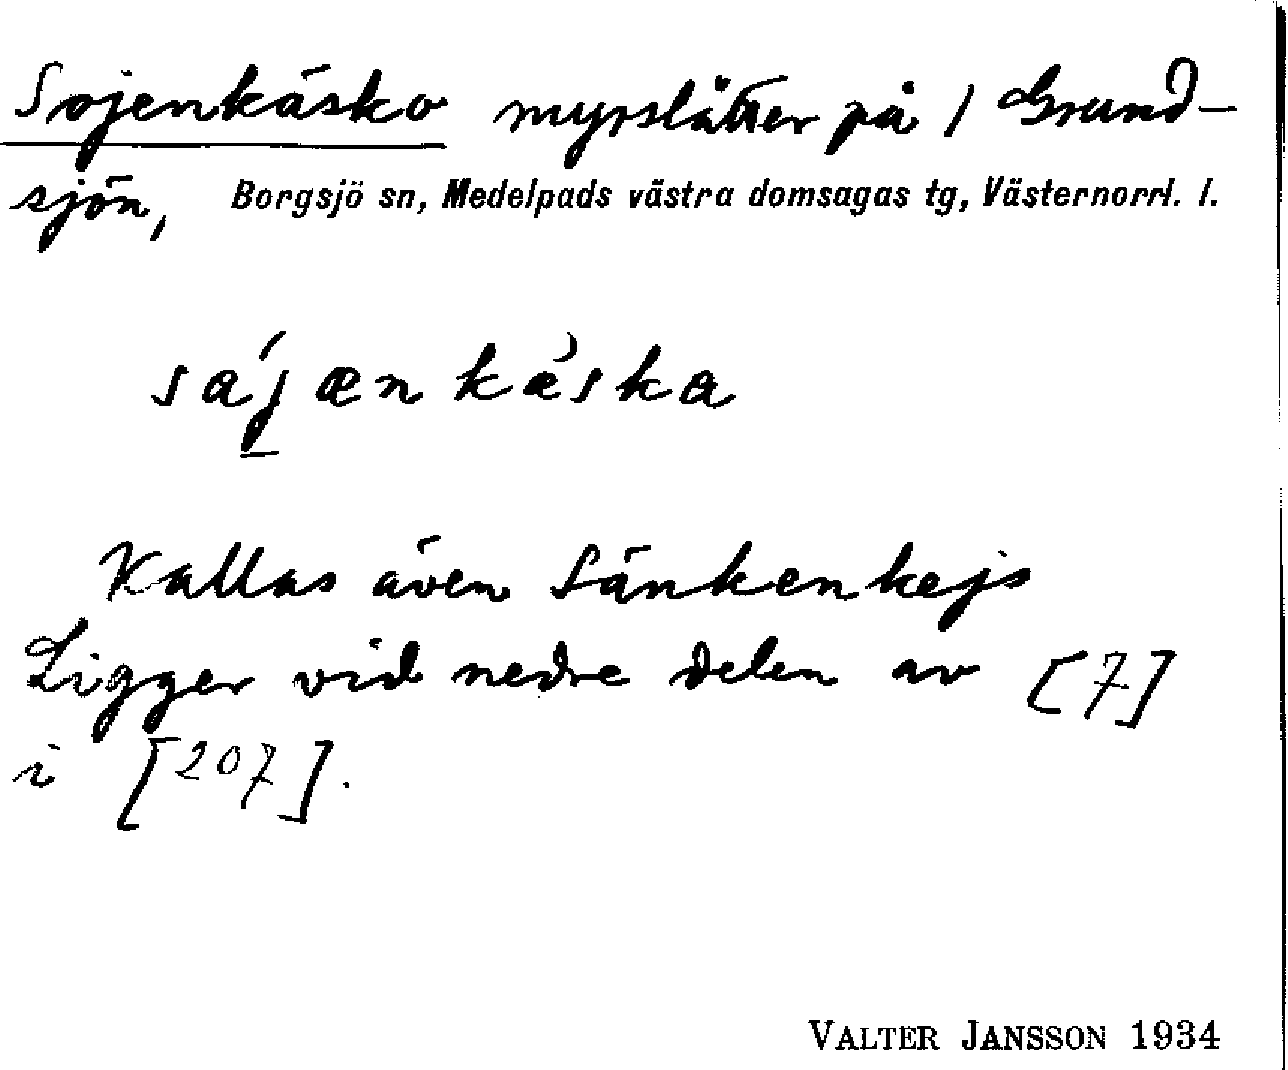 Sojenkäsko myrslåtter på 1 Grund-
sjön, Borgsjö sn, Medelpads västra domsagas tg, Västernorrl. l.
sa´jænkæska
Kallas även Sänkenkejs
Ligger vid nedre delen av [7]
i [207].
VALTER JANSSON 1934